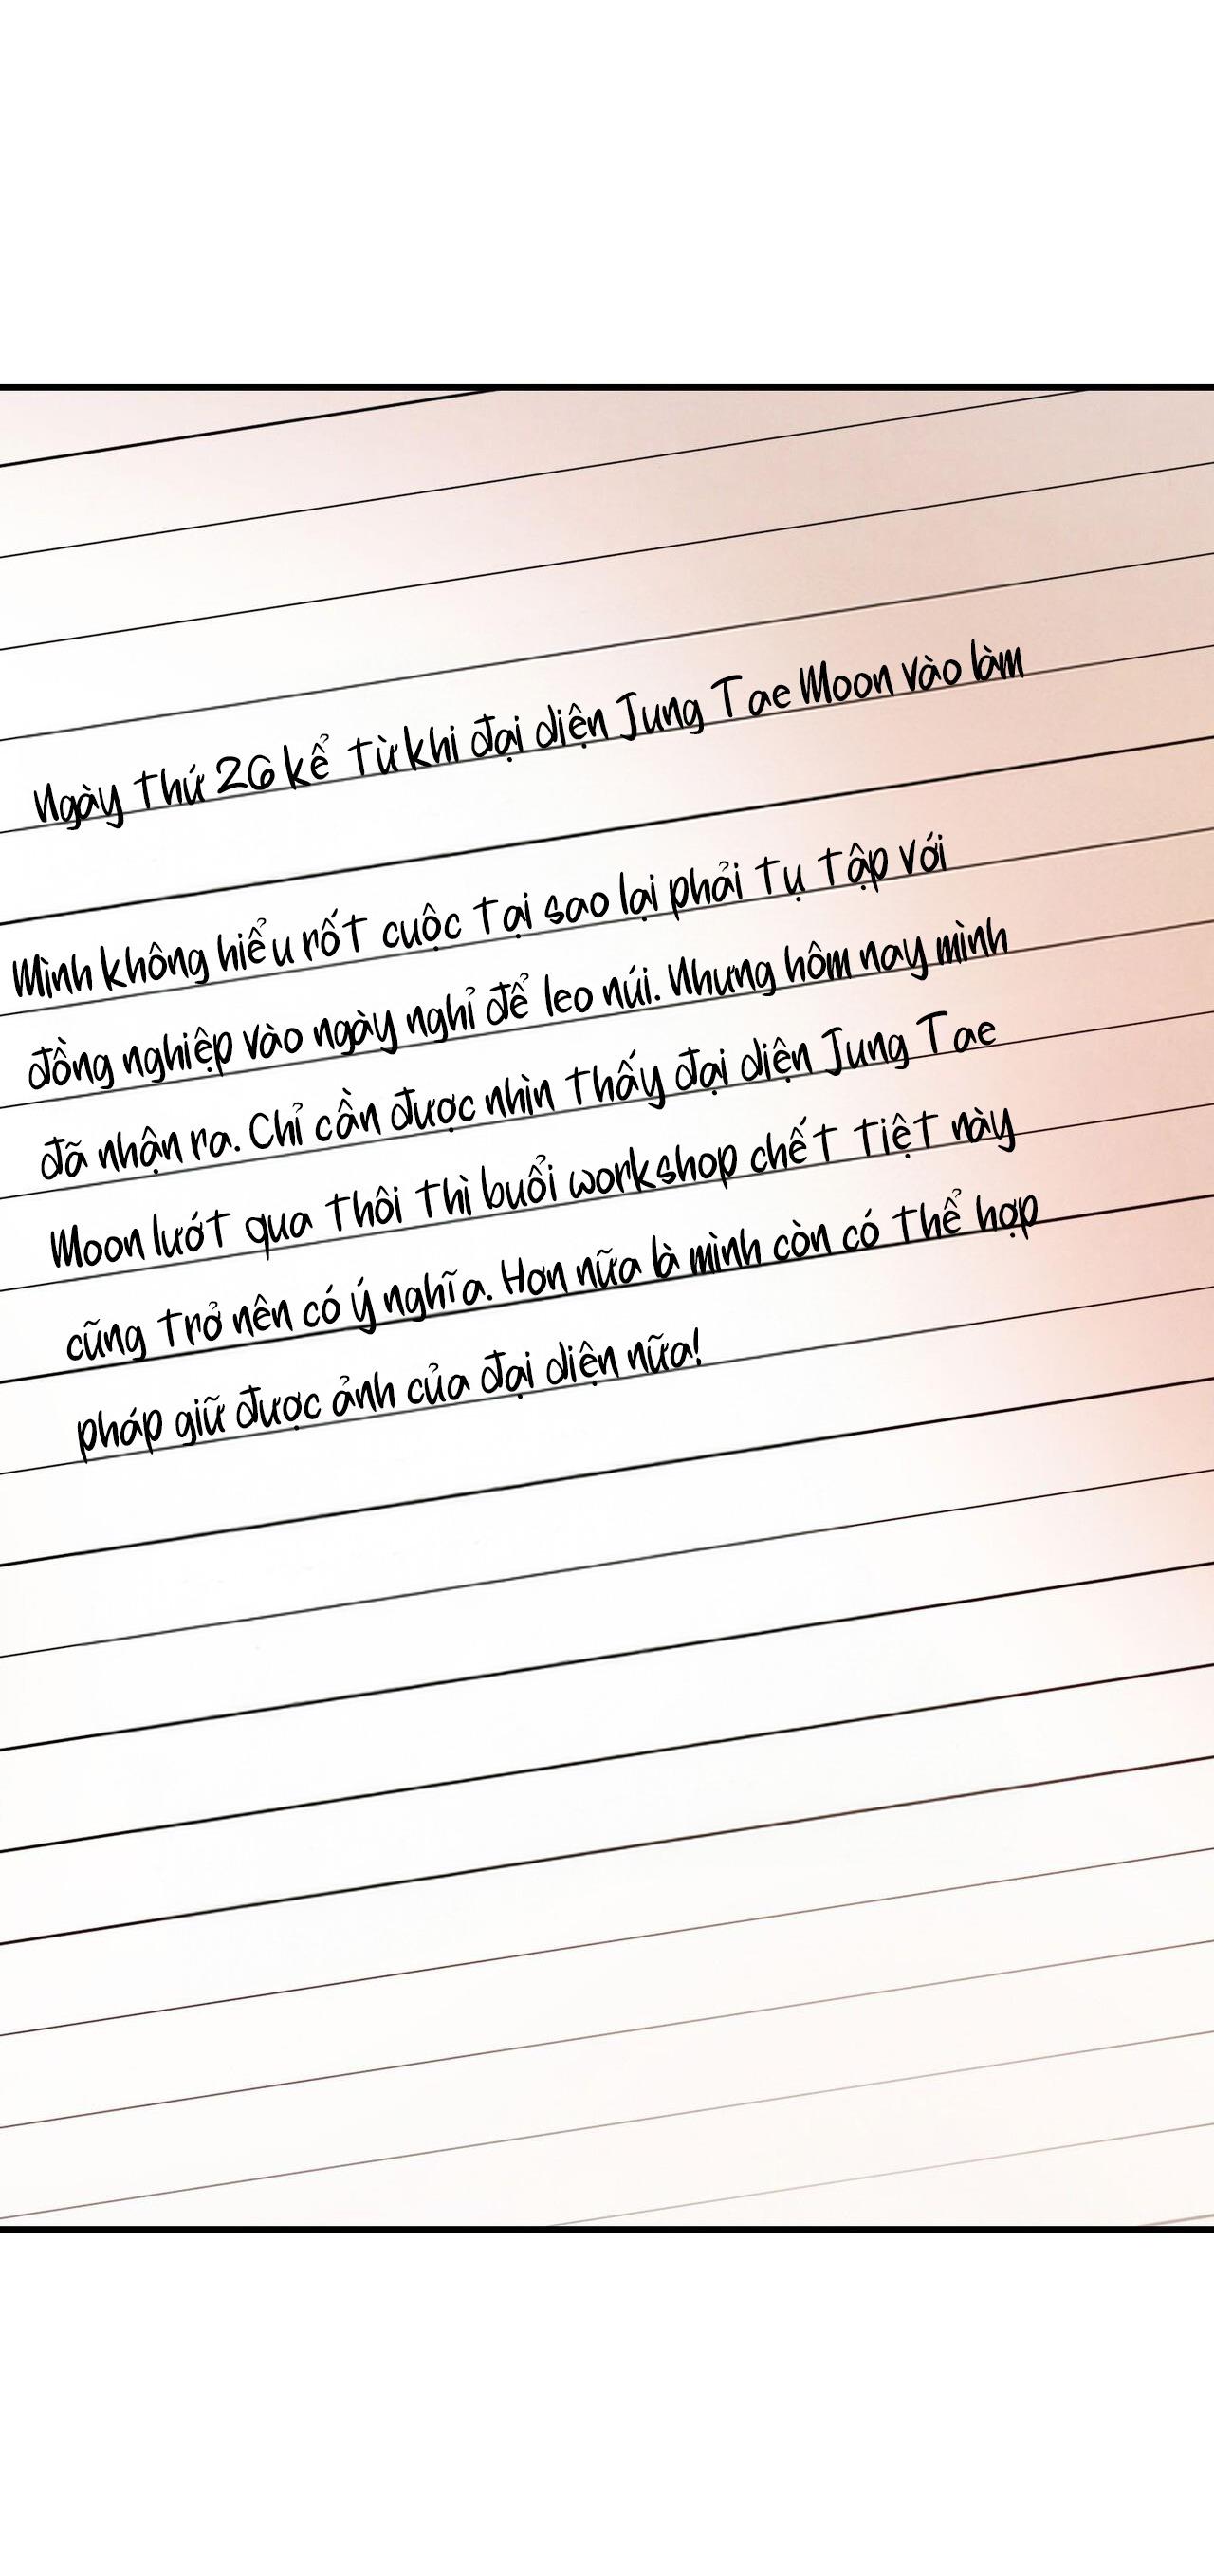 Ngày thứ 26 kể từ khi đại diện Jung Tae Moon vào làm
Mình không hiểu rốt cuộc tại sao lại phải tụ tập với
đồng nghiệp vào ngày nghỉ để leo núi. Nhưng hôm nay mình
đã nhận ra. Chỉ cần được nhìn thấy đại diện Jung Tae
Moon lướt qua thôi thì buổi workshop chết tiệt này
cũng trở nên có ý nghĩa. Hơn nữa là mình còn có thể hợp
pháp giữ được ảnh của đại diện nữa!